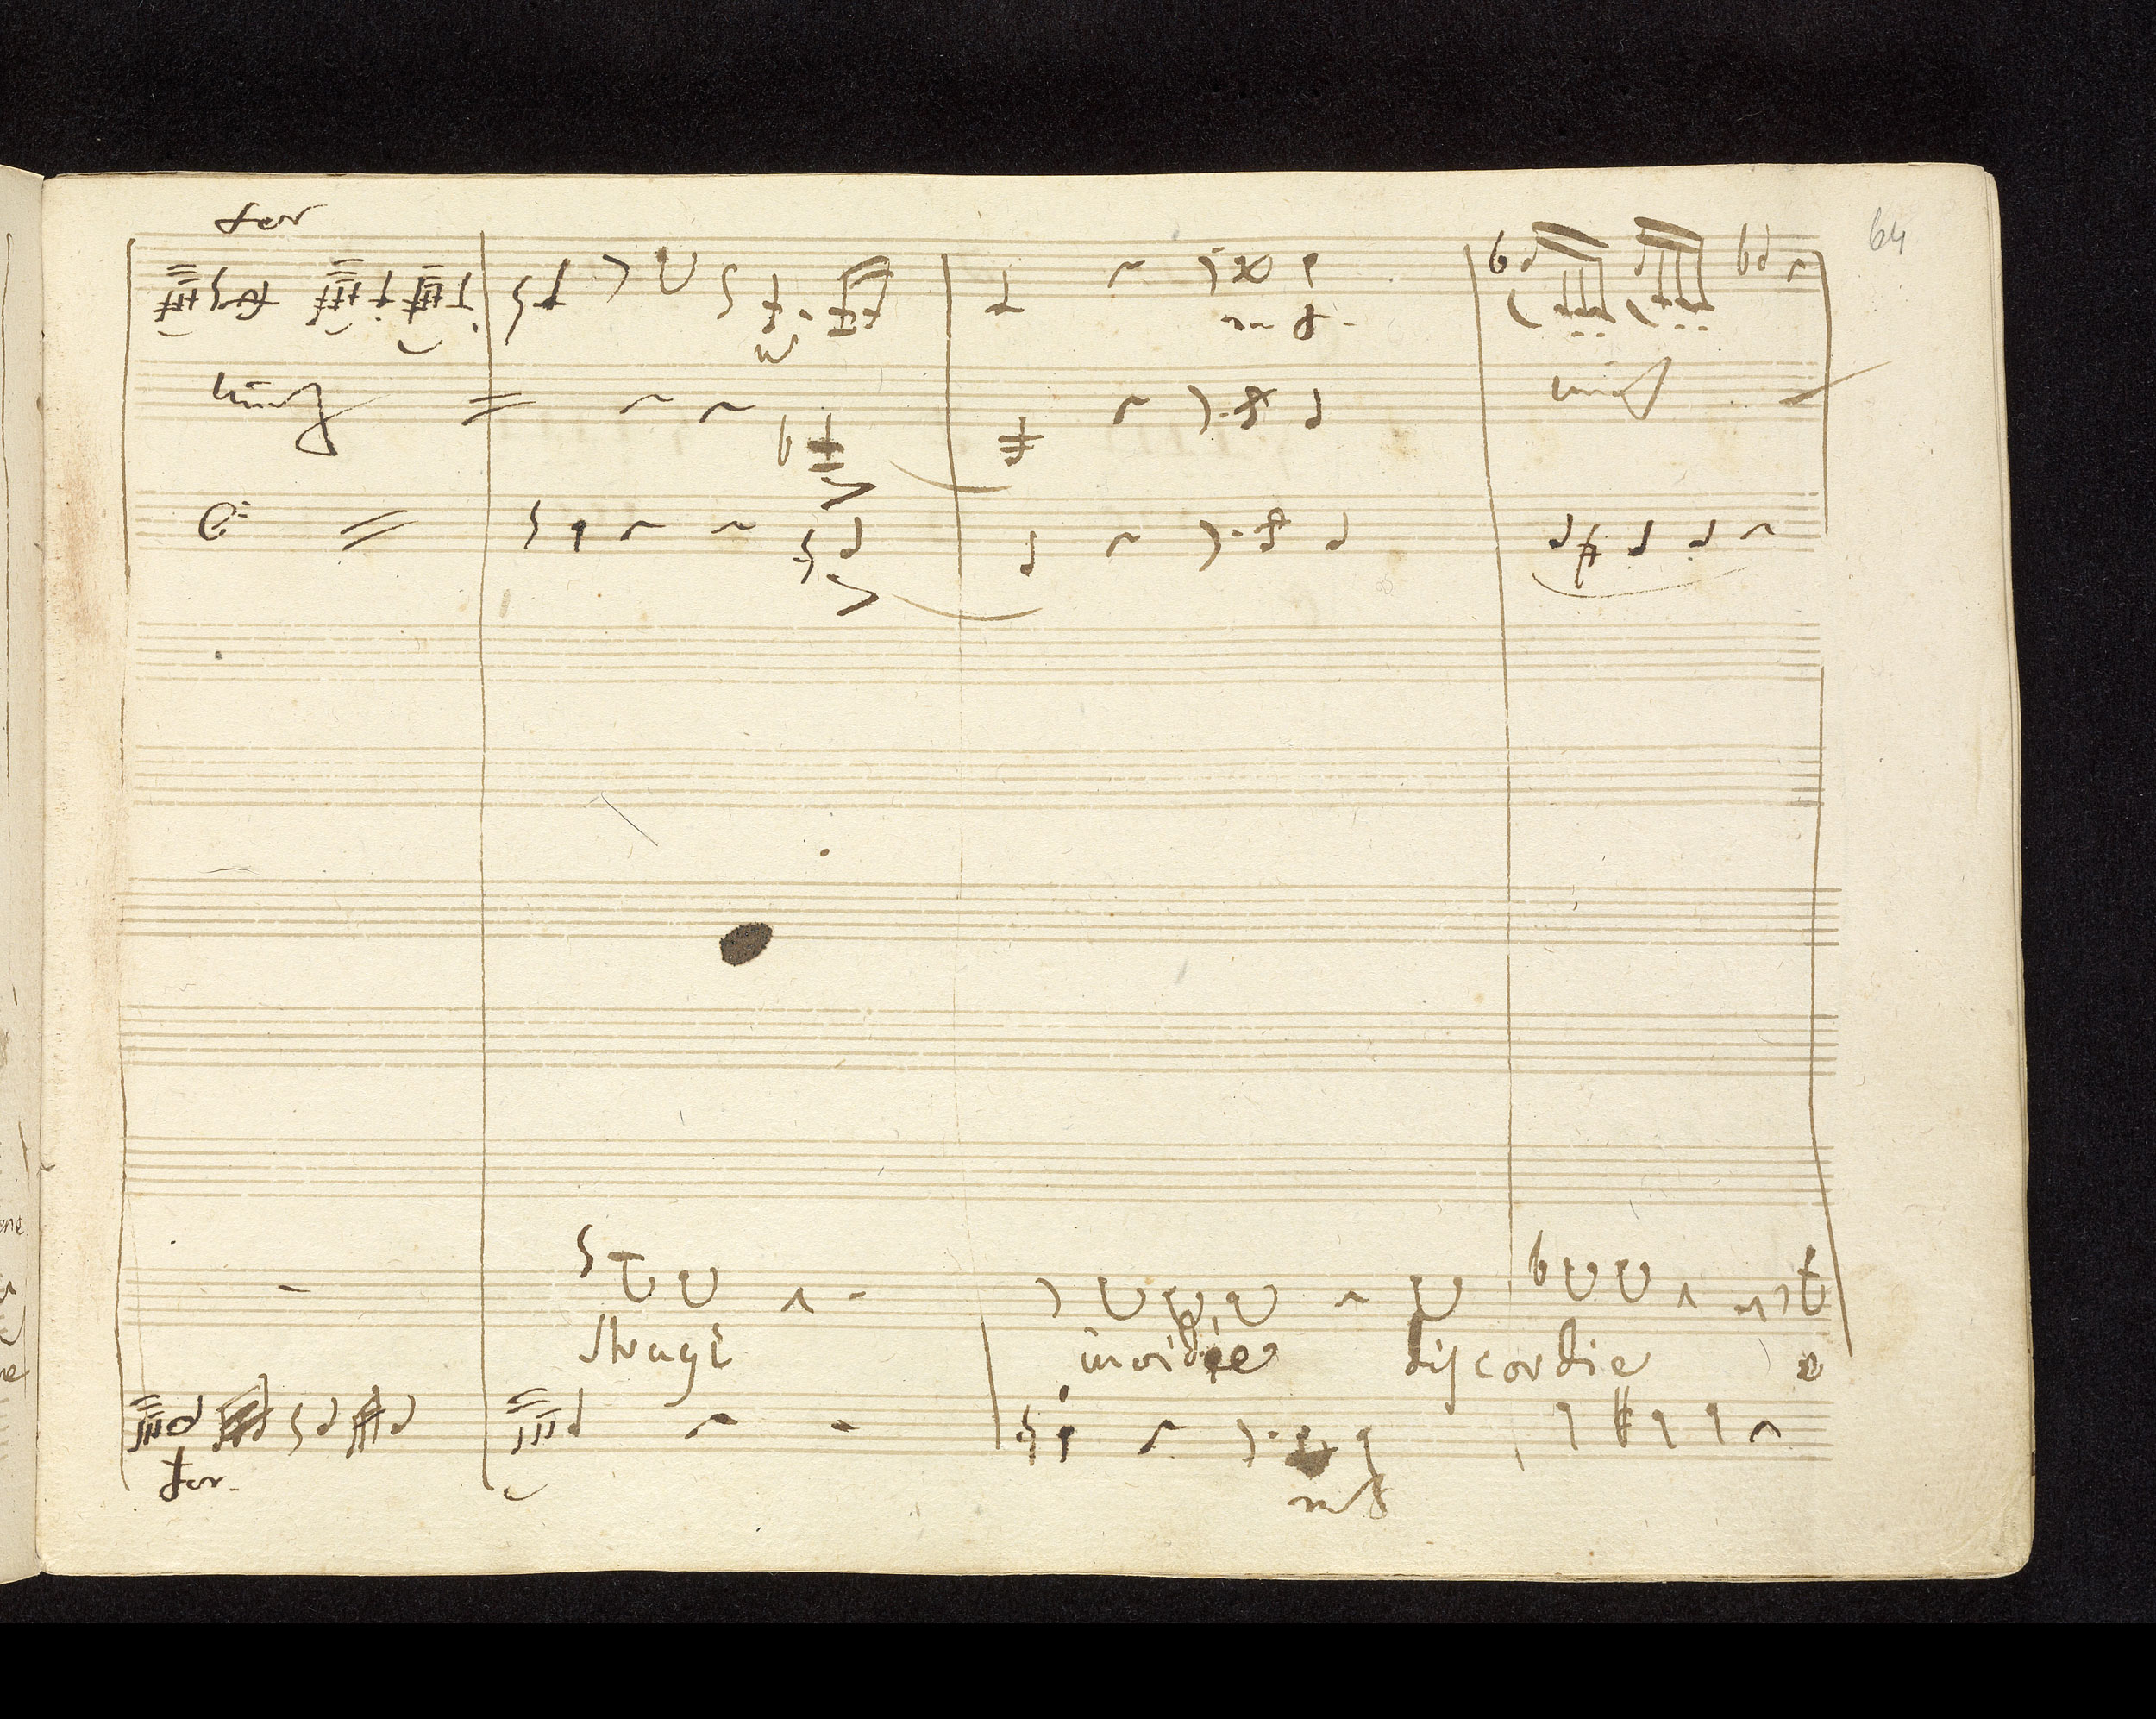 64
for
unis
unis
Stragi
invidie discordie e
for.
mf